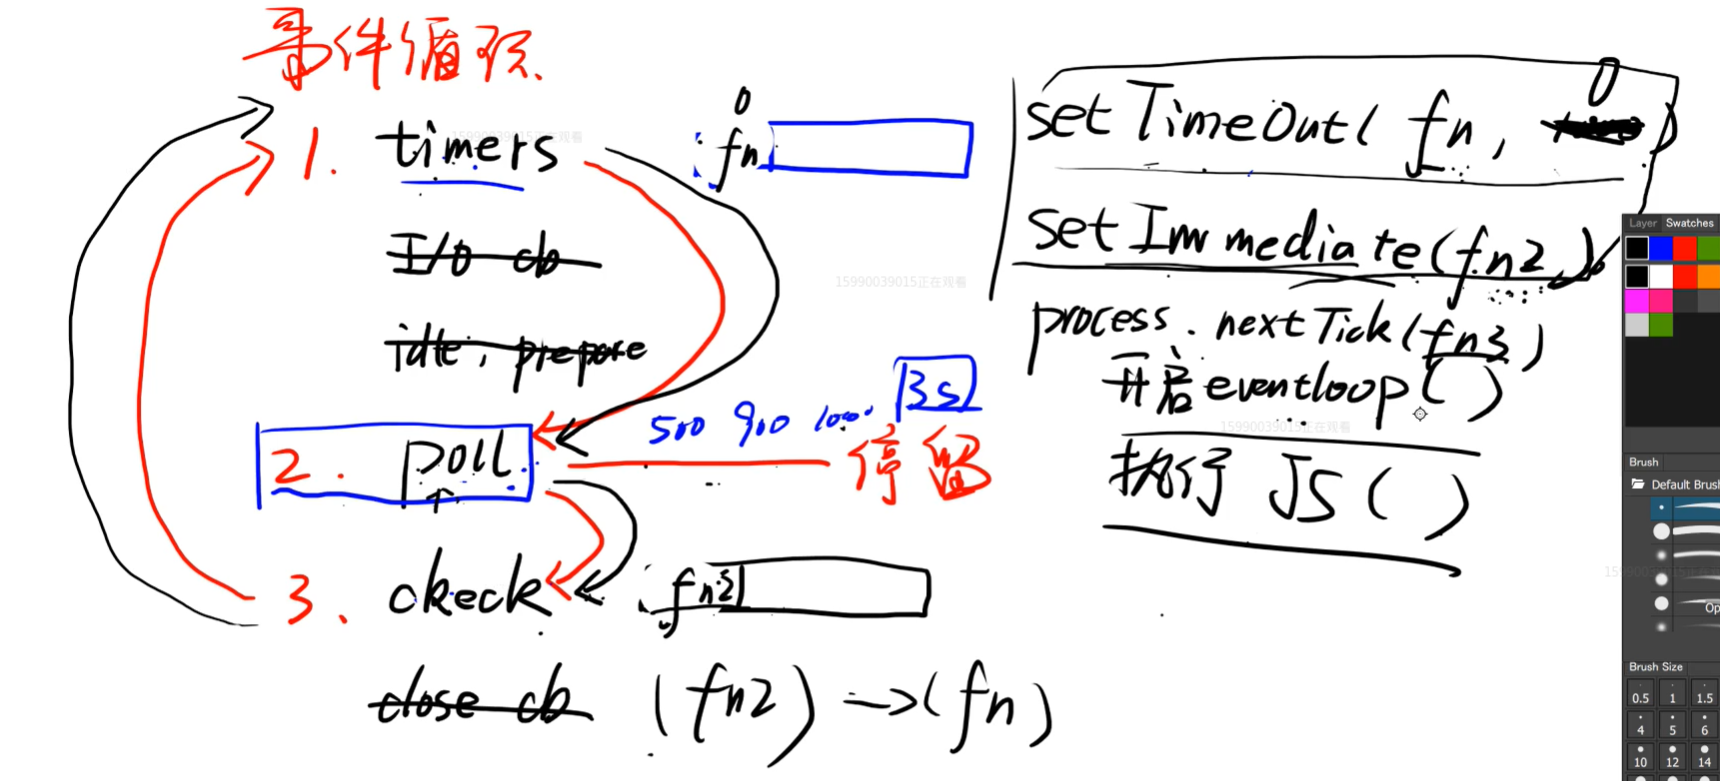 事件循环
1. timers
0
fn
I/O cb
idle, prepare
2. poll
500 900 1000
3s
停留
3. ckeck
fn2
close cb
(fn2) → (fn)
0
setTimeOut( fn, )
setImmediate(fn2,)
process.nextTick(fn3)
开启eventloop()
执行 JS()
15990039015正在观看
15990039015正在观看
15990039015正在观看
Layer Swatches
Brush
Default Brush
Op
Brush Size
0.5 1 1.5
4 5 6
10 12 14